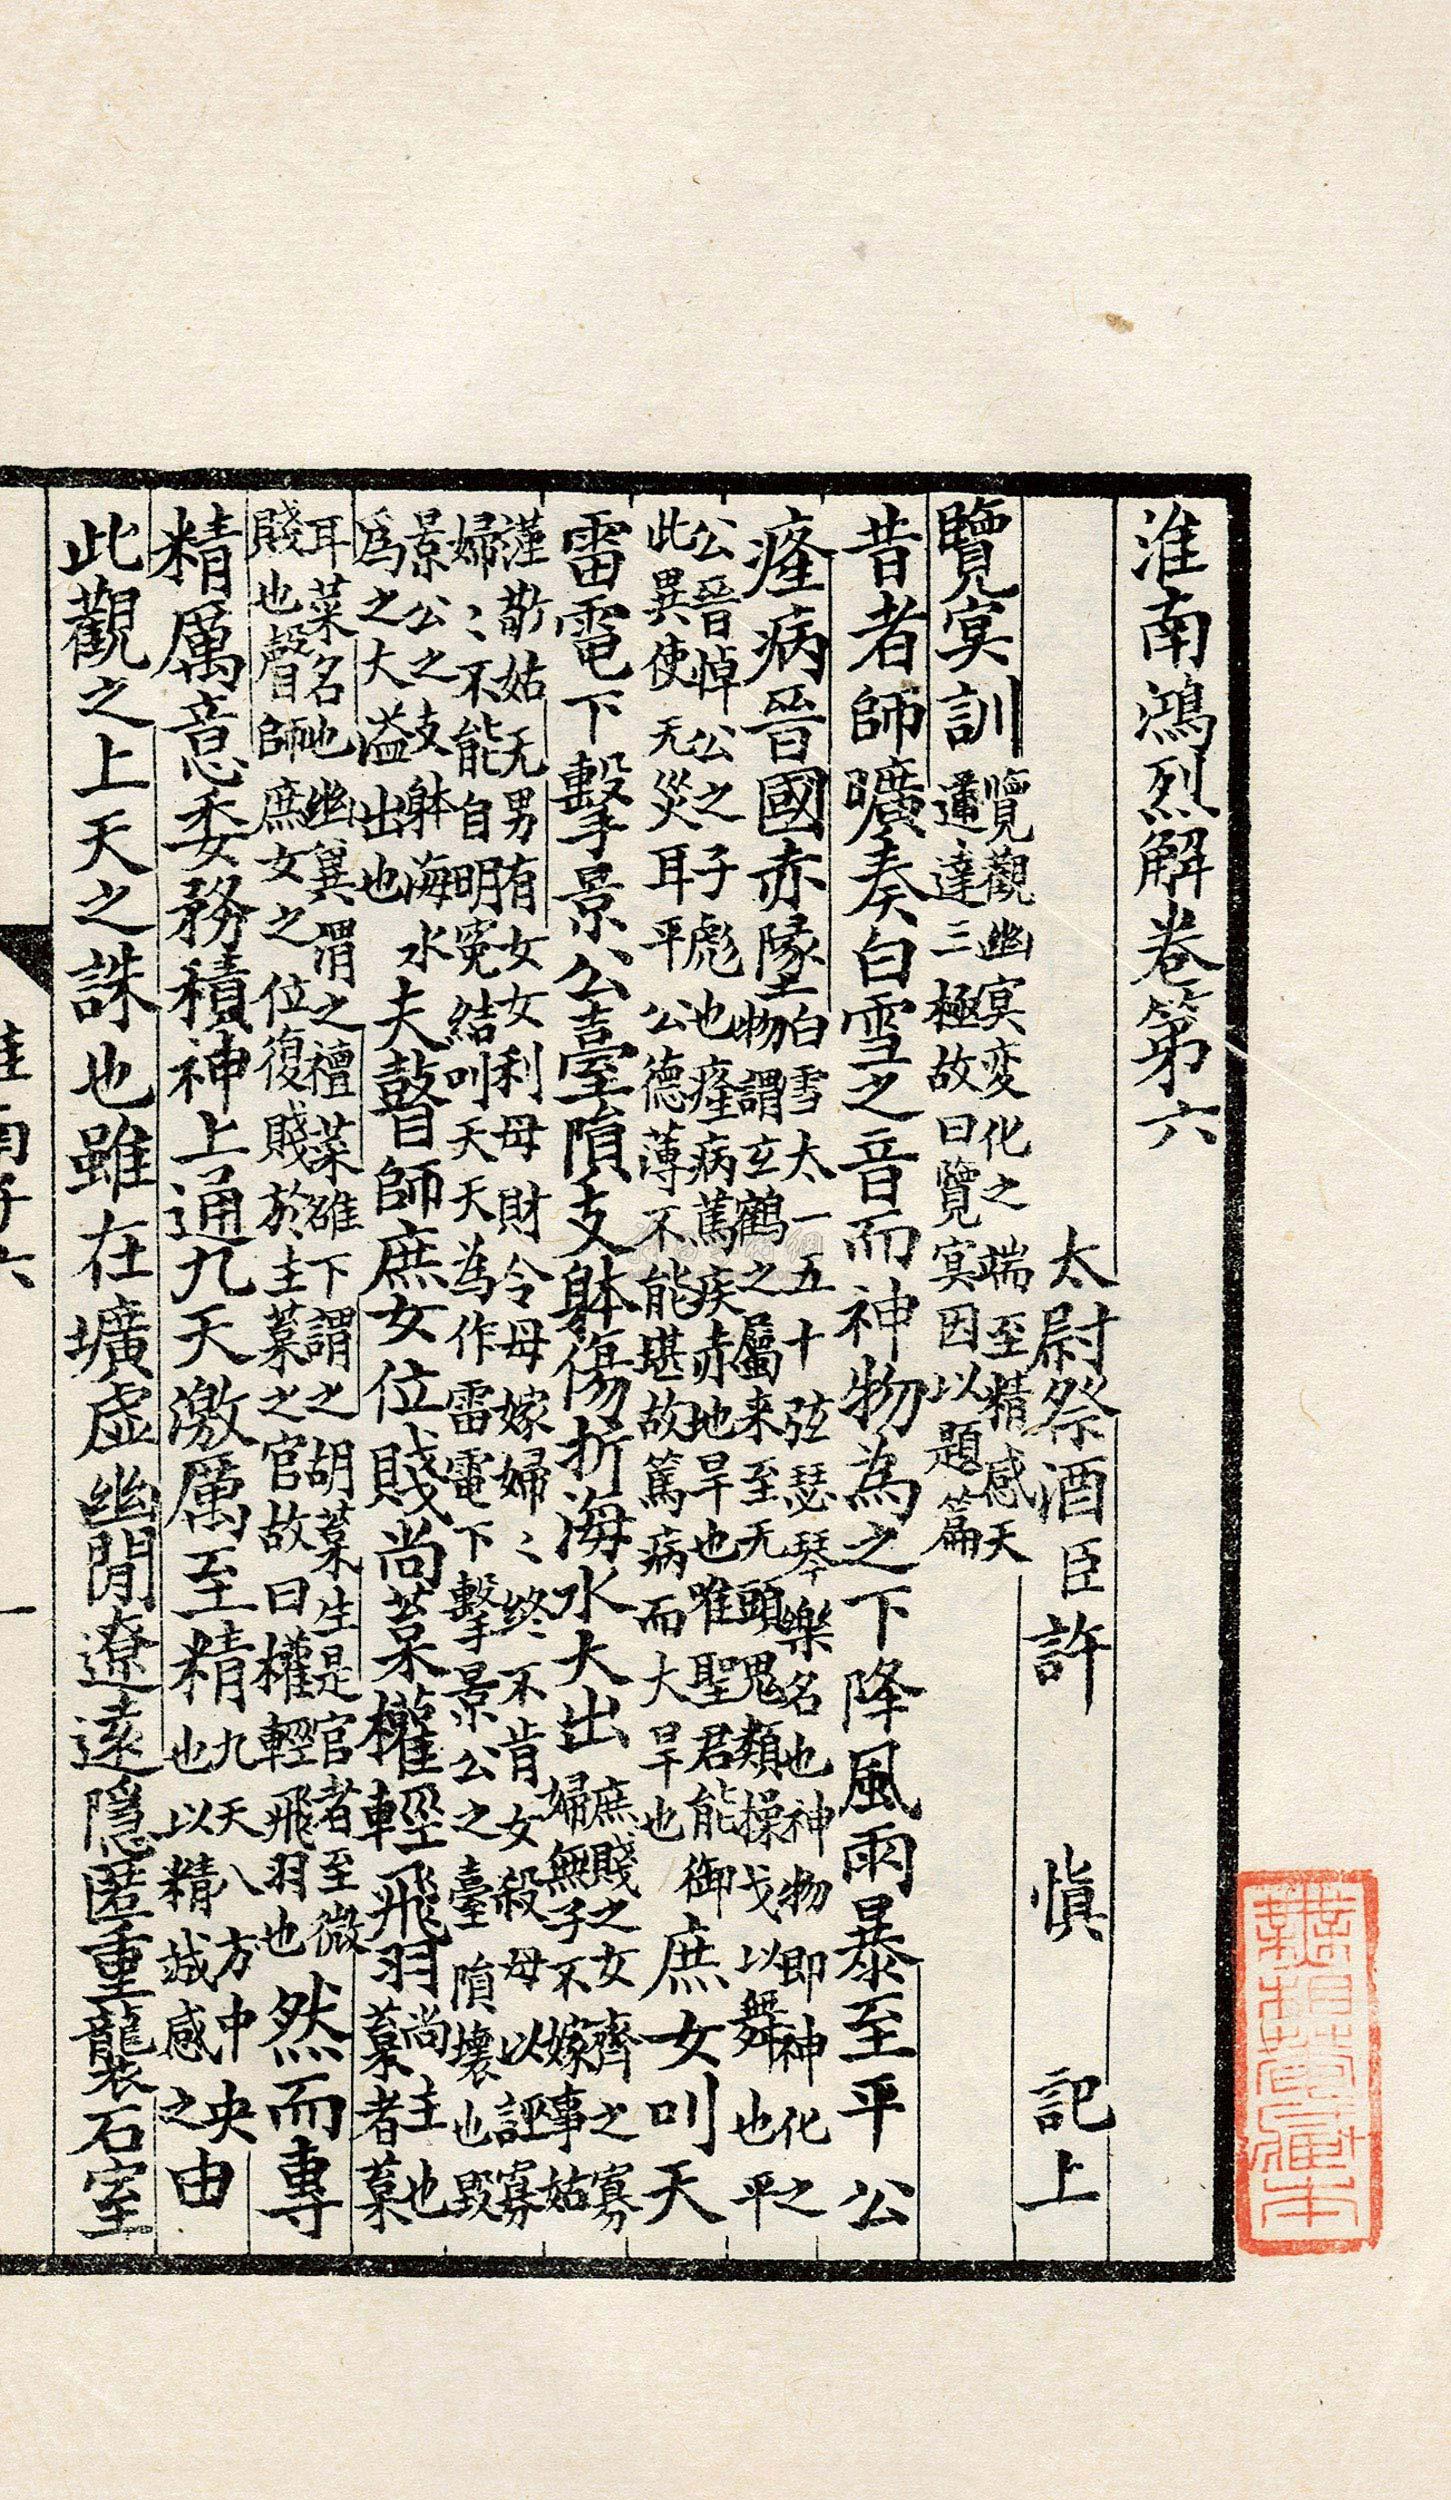 淮南鴻烈解卷第六
太尉祭酒臣許慎記上
覽冥訓覽觀幽冥変化之端至精感天
通達三極故曰覽冥因以題篇
昔者師曠奏白雪之音而神物為之下降風雨暴至平公
癃病晉國赤墬白雪太一五十弦瑟琴樂名也神物即神化之
物謂玄鶴之屬来至无頭鬼類操戈以舞也平
公晉悼公之子彪也癃病篤疾赤地旱也唯聖君能御
此異使无災耳平公德薄不能堪故篤病而大旱也庶女叫天
雷電下擊景公臺隕支躰傷折海水大出庶賤之女齊之寡
婦無子不嫁事姑
謹敬姑无男有女女利母財令母嫁婦〻終不肯女殺母以誣寡
婦〻不能自明冤結叫天天為作雷電下擊景公之臺隕壞也毀
景公之支躰海水
為之大溢出也夫瞽師庶女位賤尚葈權輕飛羽尚主也
葈者葈
耳菜名也幽冀謂之襢菜雒下謂之胡葈主是官者至微
賤也瞽師庶女之位復賤於主葈之官故曰權輕飛羽也然而專
精厲意委務積神上通九天激厲至精九天八方中央
也以精誠感之由
此觀之上天之誅也雖在壙虛幽閒遼遠隱匿重襲石室